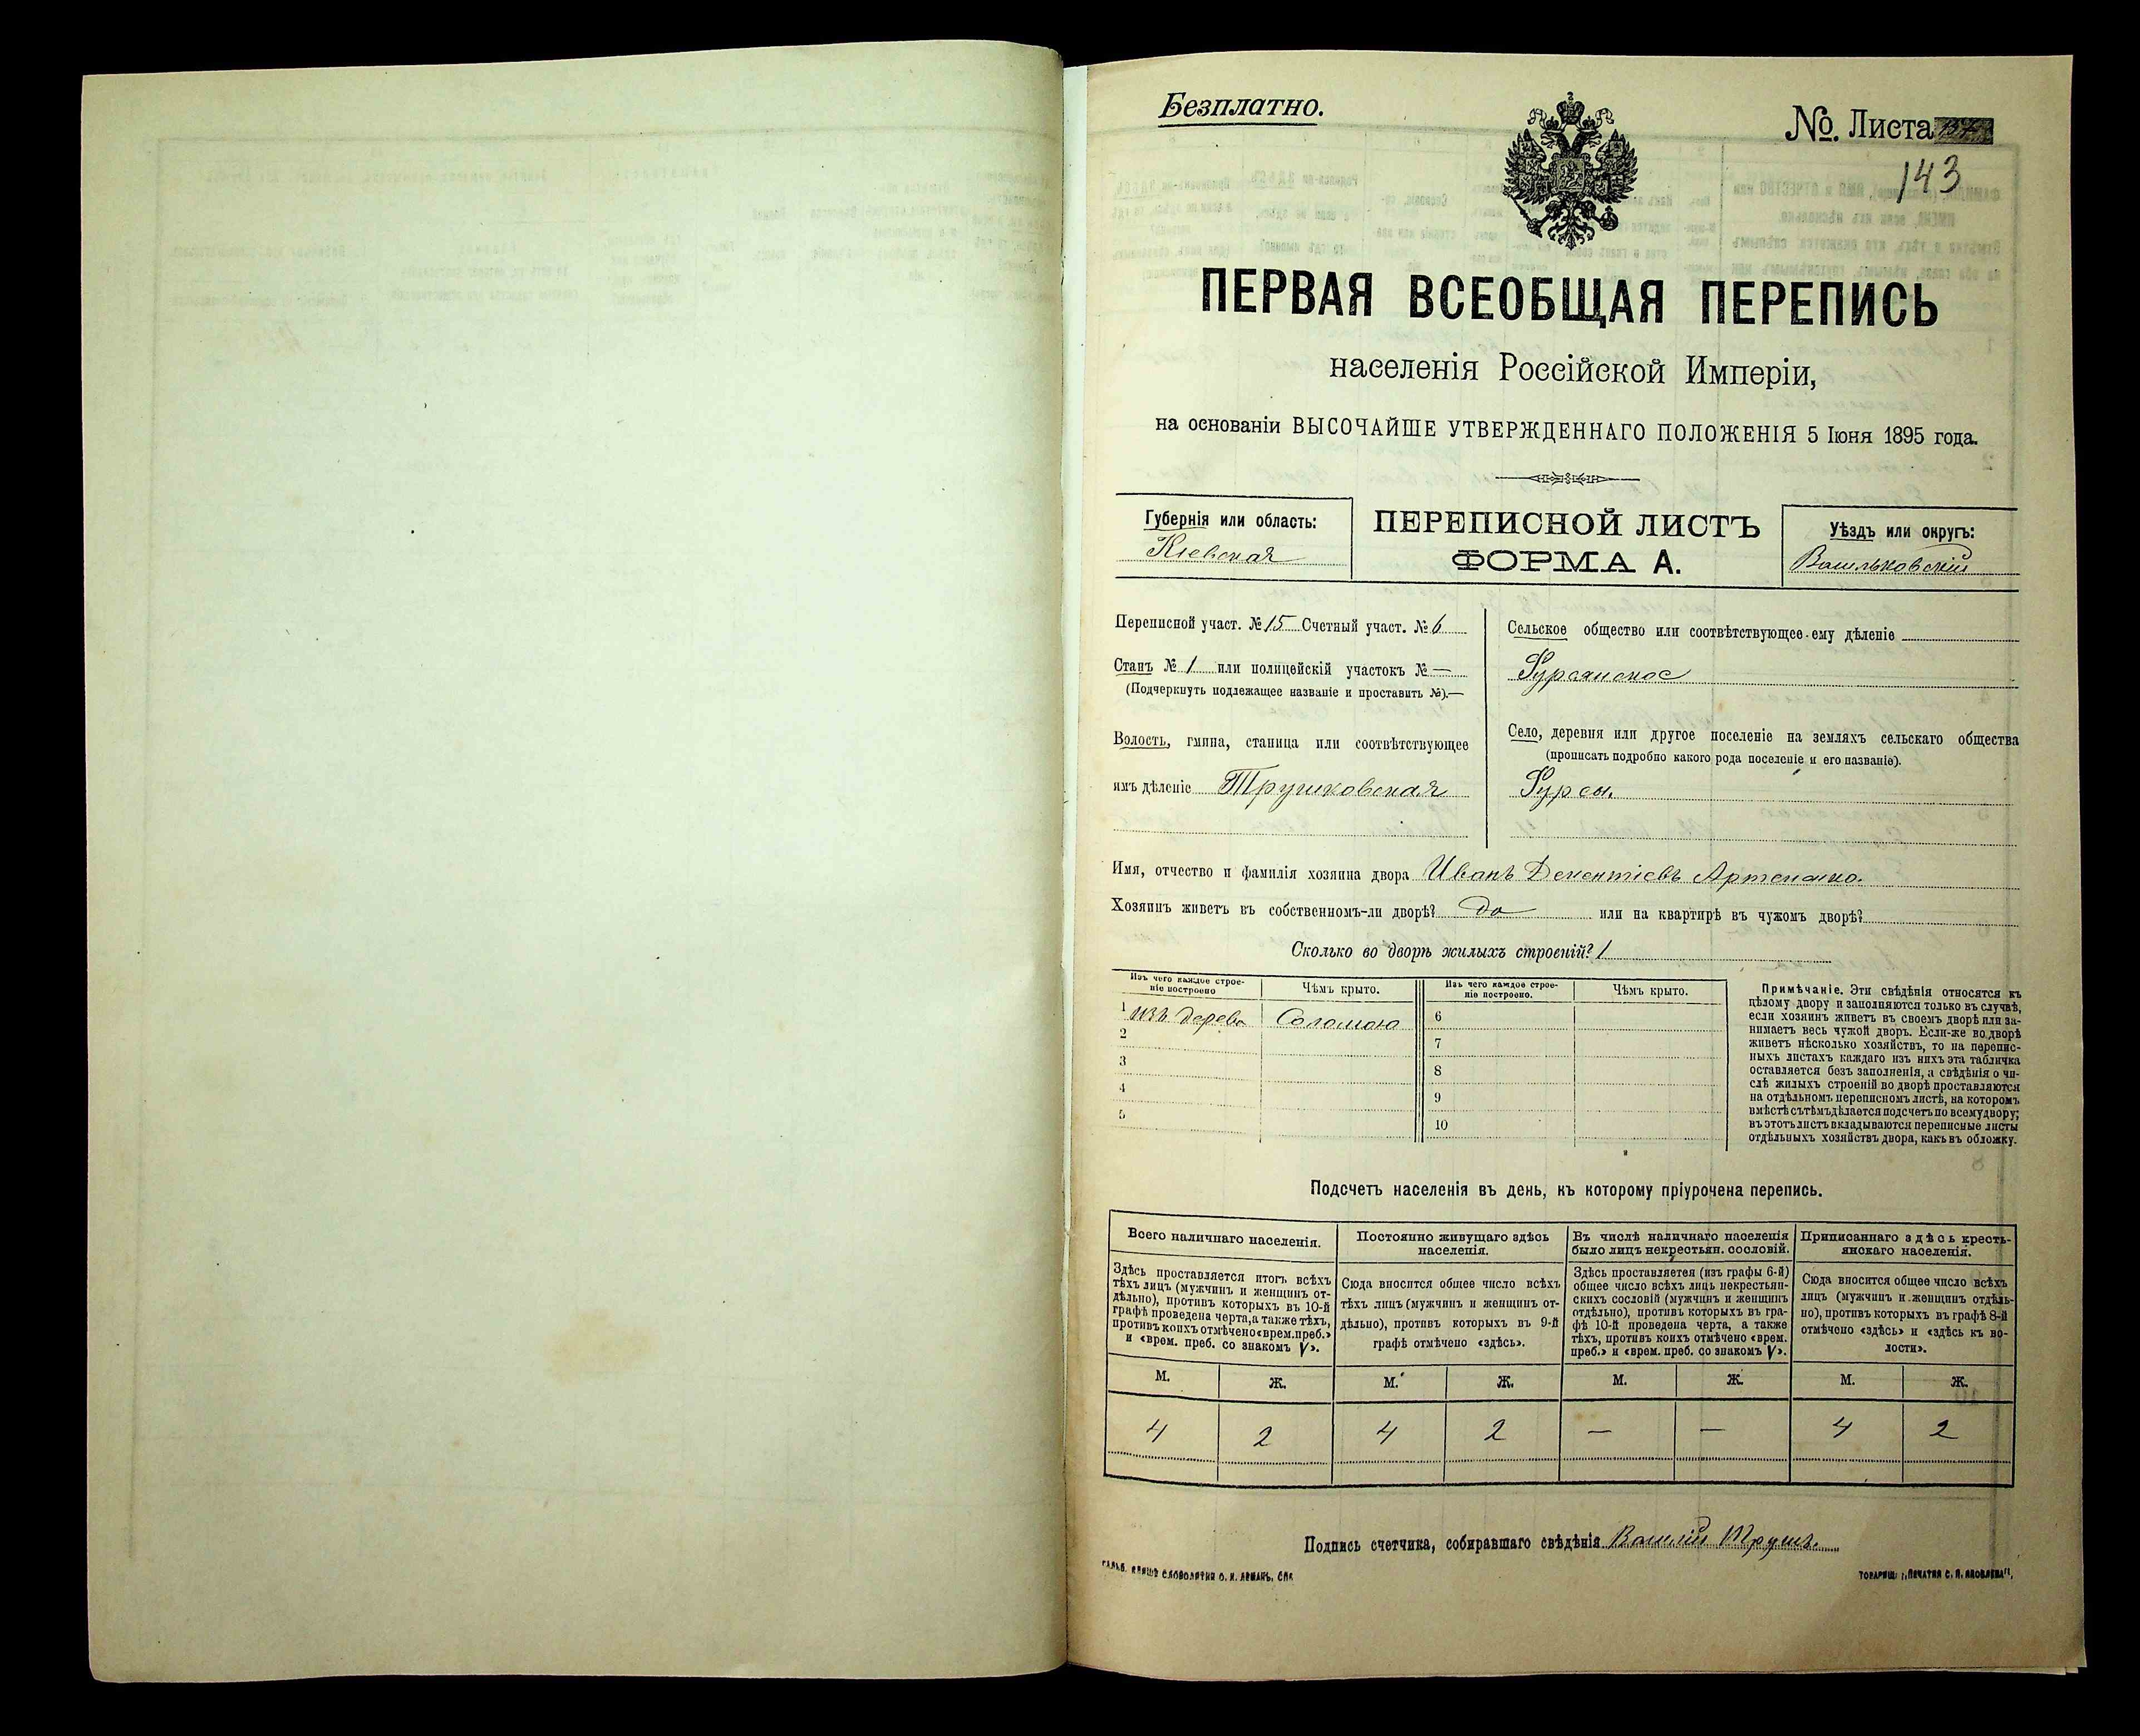 Безплатно.
№. Листа 137
143
ПЕРВАЯ ВСЕОБЩАЯ ПЕРЕПИСЬ
населенія Россійской Имперіи,
на основаніи ВЫСОЧАЙШЕ УТВЕРЖДЕННАГО ПОЛОЖЕНІЯ 5 Іюня 1895 года.
Губернія или область:
Кіевская
ПЕРЕПИСНОЙ ЛИСТЪ
ФОРМА А.
Уѣздъ или округъ:
Васильковскій
Переписной участ. № 15 Счетный участ. № 6
Станъ № 1 или полицейскій участокъ № —
(Подчеркнуть подлежащее названіе и проставить №).—
Волость, гмина, станица или соотвѣтствующее
имъ дѣленіе Трушковская
Сельское общество или соотвѣтствующее ему дѣленіе
Фурсянское
Село, деревня или другое поселеніе на земляхъ сельскаго общества
(прописать подробно какого рода поселеніе и его названіе).
Фурсы.
Имя, отчество и фамилія хозяина двора Иванъ Дементіевъ
Хозяинъ живетъ въ собственномъ-ли дворѣ? да или на квартирѣ въ чужомъ дворѣ?
Сколько во дворѣ жилыхъ строеній? 1
Изъ чего каждое строе-
ніе построено
Чѣмъ крыто.
Изъ чего каждое строе-
ніе построено.
Чѣмъ крыто.
1 изъ дерева Соломою 6
2 7
3 8
4 9
5 10
Примѣчаніе. Эти свѣдѣнія относятся къ
цѣлому двору и заполняются только въ случаѣ,
если хозяинъ живетъ въ своемъ дворѣ или за-
нимаетъ весь чужой дворъ. Если-же во дворѣ
живетъ нѣсколько хозяйствъ, то на перепис-
ныхъ листахъ каждаго изъ нихъ эта табличка
оставляется безъ заполненія, а свѣдѣнія о чи-
слѣ жилыхъ строеній во дворѣ проставляются
на отдѣльномъ переписномъ листѣ, на которомъ
вмѣстѣ съ тѣмъ дѣлается подсчетъ по всему двору;
въ этотъ листъ вкладываются переписные листы
отдѣльныхъ хозяйствъ двора, какъ въ обложку.
Подсчетъ населенія въ день, къ которому пріурочена перепись.
Всего наличнаго населенія.
Здѣсь проставляется итогъ всѣхъ
тѣхъ лицъ (мужчинъ и женщинъ от-
дѣльно), противъ которыхъ въ 10-й
графѣ проведена черта, а также тѣхъ,
противъ коихъ отмѣчено «врем. преб.»
и «врем. преб. со знакомъ V».
Постоянно живущаго здѣсь
населенія.
Сюда вносится общее число всѣхъ
тѣхъ лицъ (мужчинъ и женщинъ от-
дѣльно), противъ которыхъ въ 9-й
графѣ отмѣчено «здѣсь».
Въ числѣ наличнаго населенія
было лицъ некрестьян. сословій.
Здѣсь проставляется (изъ графы 6-й)
общее число всѣхъ лицъ некрестьян-
скихъ сословій (мужчинъ и женщинъ
отдѣльно), противъ которыхъ въ гра-
фѣ 10-й проведена черта, а также
тѣхъ, противъ коихъ отмѣчено «врем.
преб.» и «врем. преб. со знакомъ V».
Приписаннаго здѣсь кресть-
янскаго населенія.
Сюда вносится общее число всѣхъ
лицъ (мужчинъ и женщинъ отдѣль-
но), противъ которыхъ въ графѣ 8-й
отмѣчено «здѣсь» и «здѣсь къ во-
лости».
М. Ж. М. Ж. М. Ж. М. Ж.
4 2 4 2 — — 4 2
Подпись счетчика, собиравшаго свѣдѣнія Василій Трушъ.
СЛОВОЛИТНЯ О. И. ЛЕМАНЪ, СПБ
ТОВАРИЩ. „ПЕЧАТНЯ С. П. ЯКОВЛЕВА",